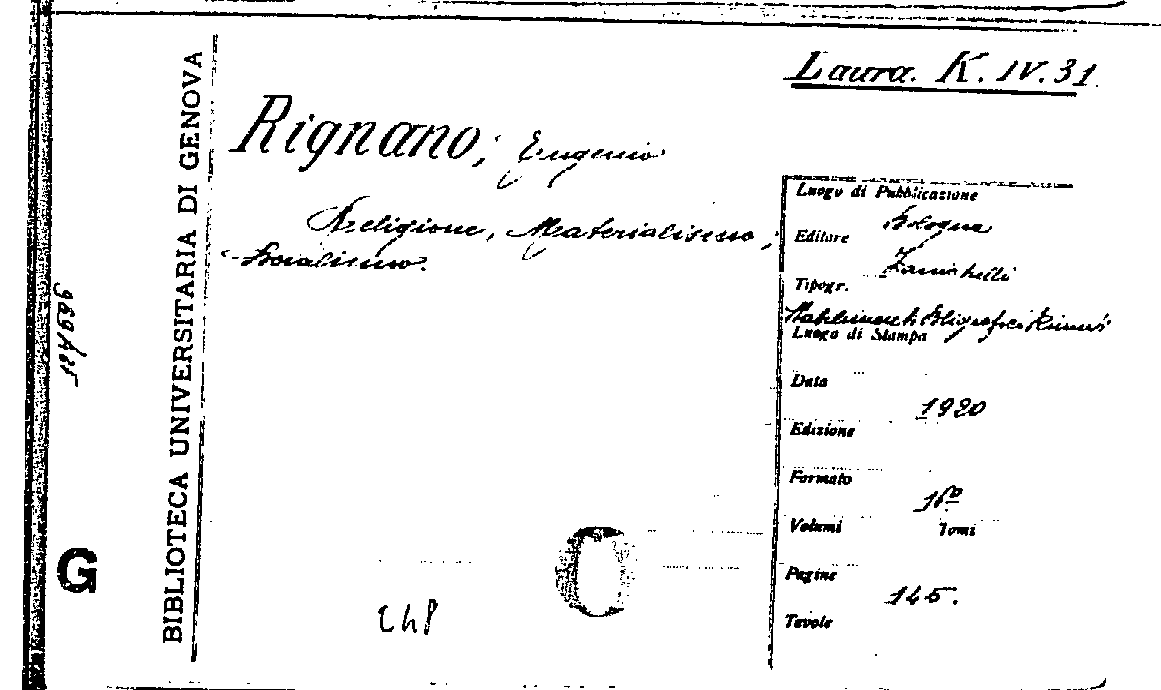 Laura. K. IV. 31
Rignano, Eugenio
Religione, Materialismo,
Socialismo.
Luogo di Pubblicazione
Bologna
Editore
Zanichelli
Tipogr.
Stabilimenti Poligrafici Riuniti
Luogo di Stampa
Data
1920
Edizione
Formato
16º
Volumi Tomi
Pagine
145.
Tavole
BIBLIOTECA UNIVERSITARIA DI GENOVA
G
C